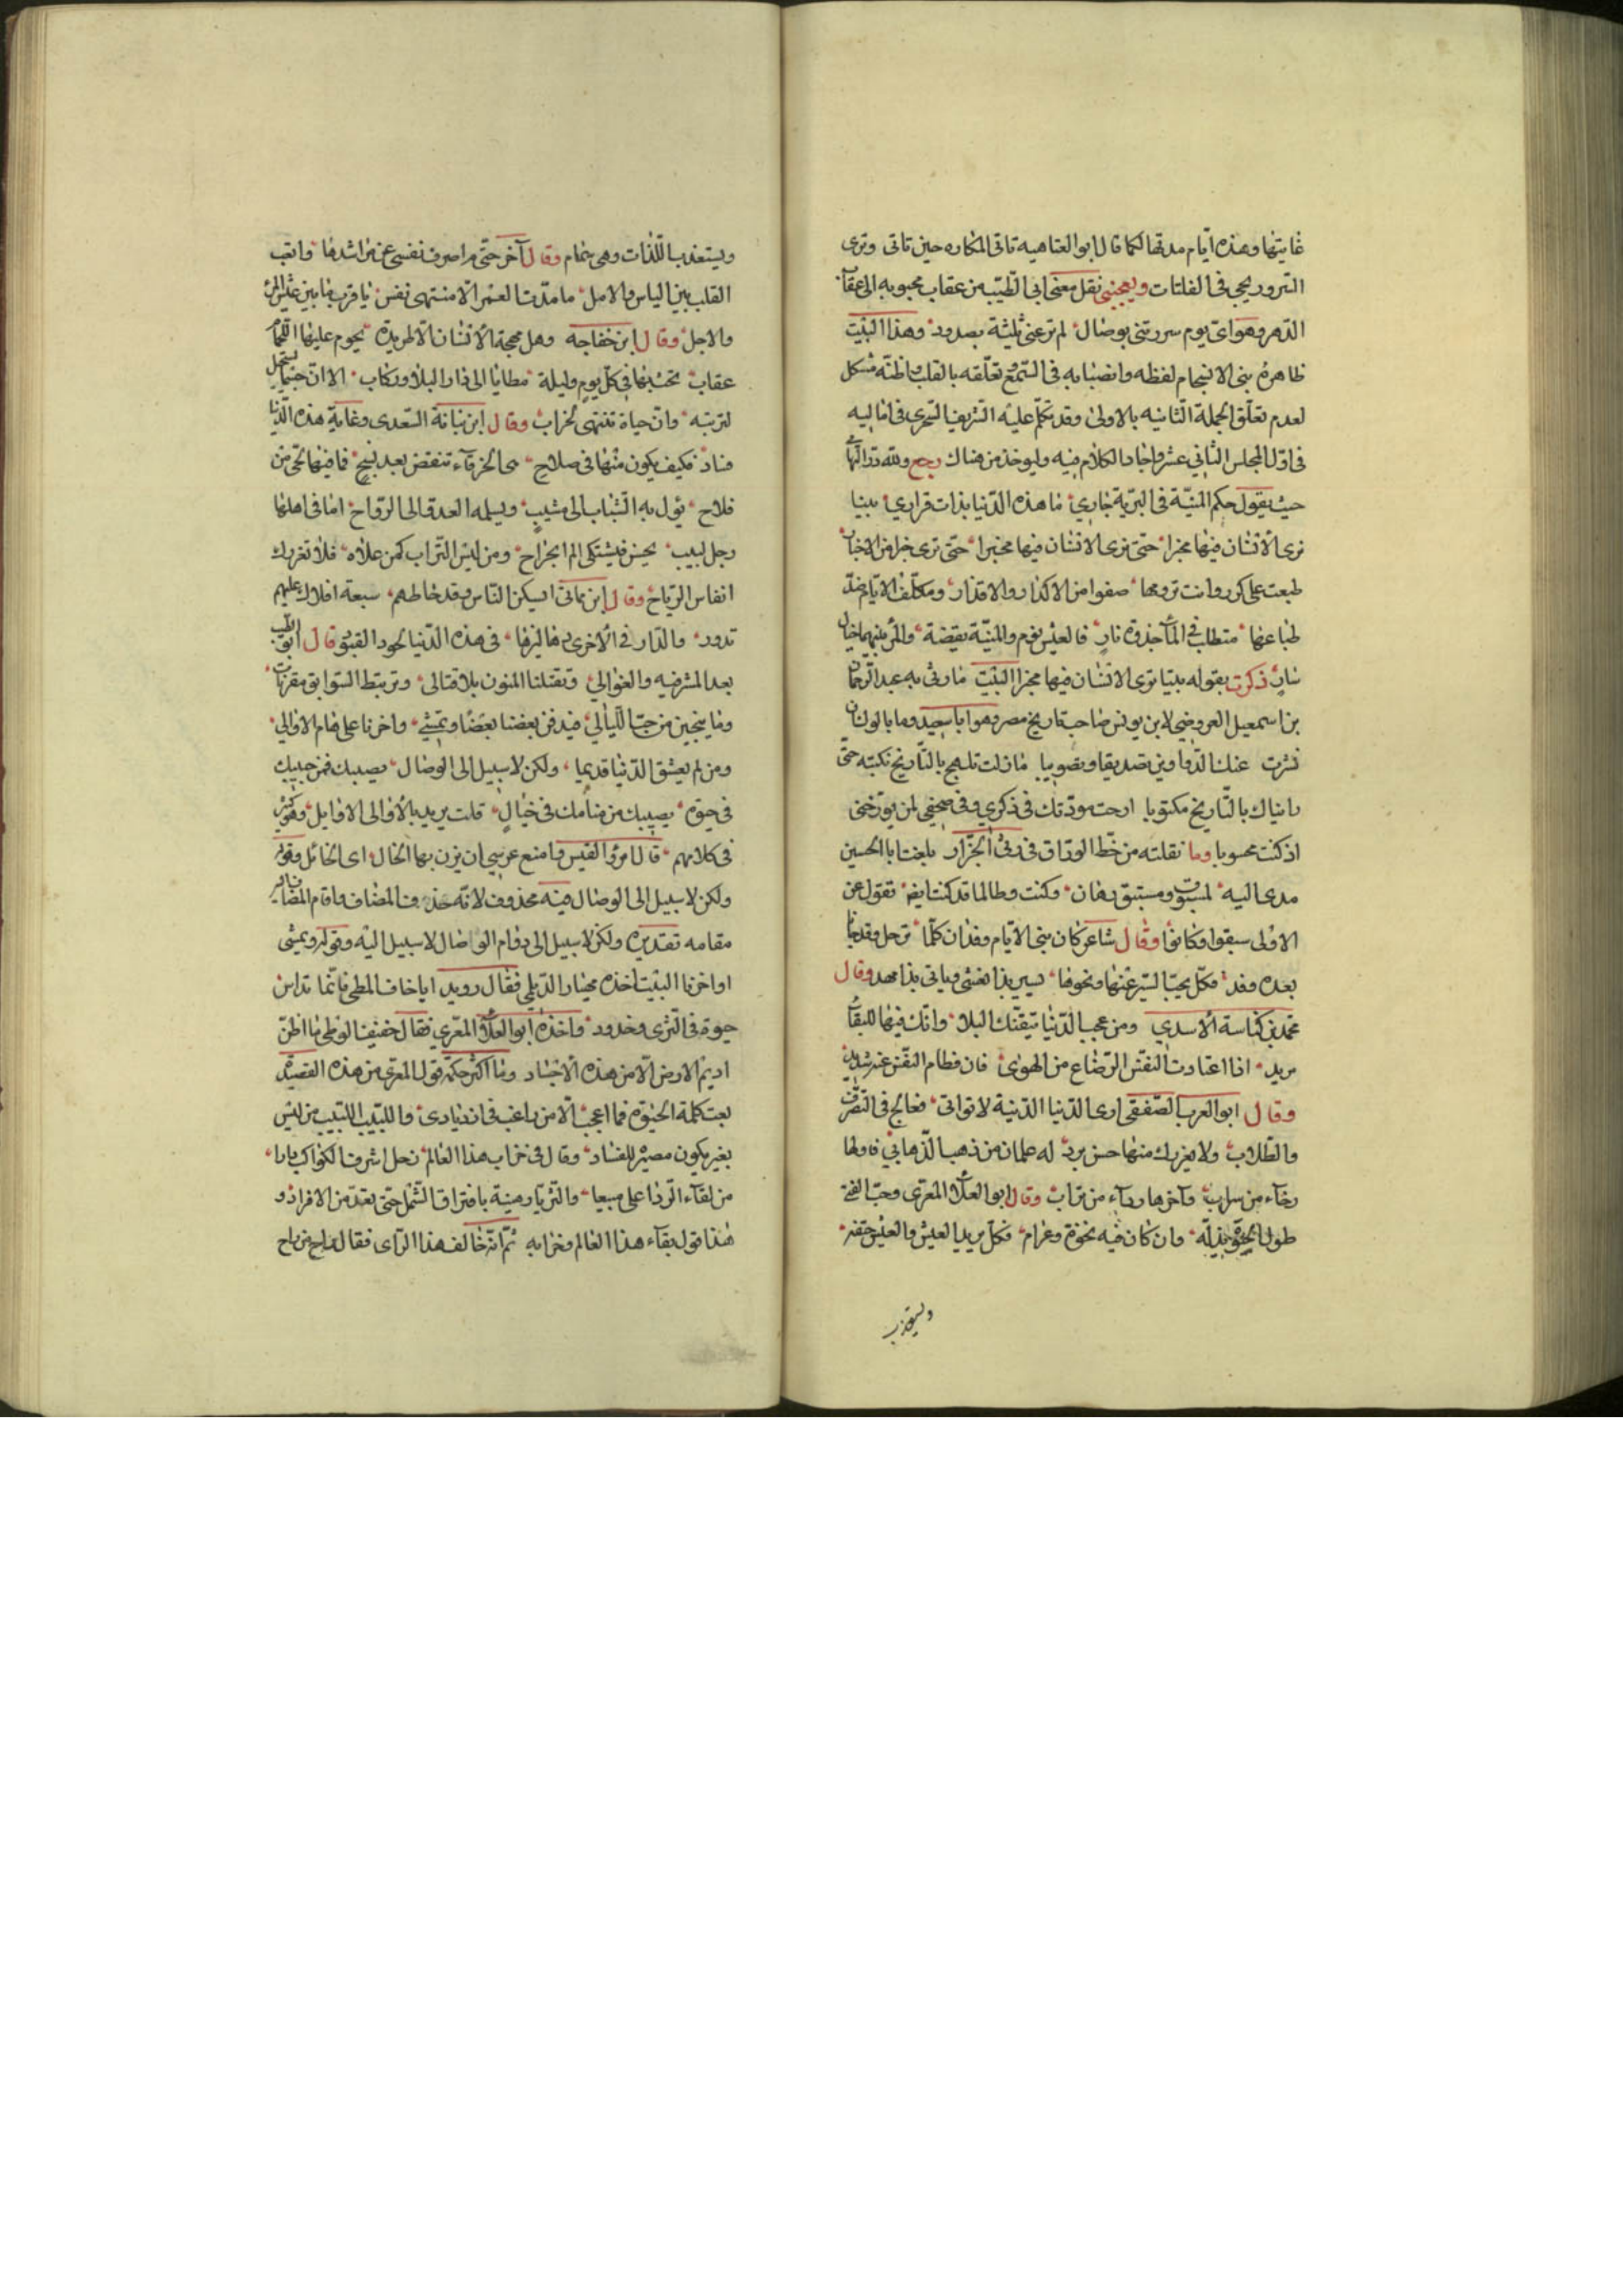 غايتها وهذه ايّام مدتها لكما قال ابو العتاهيه تاتى المكاره حين تاتى وترى
السرور يجى فى الفلتات ويعجبنى نقل معنى ابى الطّيب من عقاب محبوبه الى عقاب
الدّهر وهو اىّ يوم سررتنى بوصال لم ترعنى ثلثة بصدود وهذا البيت
ظاهره بنى الانسجام لفظه وانصبابه فى السّمع وتعلّقه بالقلب وباطنه مشكل
لعدم تعلّق الجملة الثانيه بالاولى وقد تكلّم عليه الشريف الشجرى فى اماليه
فى اوّل المجلس الثانى عشر واجاد الكلام فيه وليوخذ من هناك رجع ولله در التهامى
حيث يقول حكم المنيّة فى البريّة جارى ما هذه الدّنيا بدار قرارى بينا
ترى الانسان فيها مخبرا حتى ترى الانسان فيها مخبرا حتّى ترى خبرا من الاخبار
طبعت على كدر وانت ترومها صفوا من الاكدار والاقذار ومكلّف الايّام ضدّ
طباعها متطلب فى المآء جذوة نار فالعيش نوم والمنيّة يقضة والمرء بينهما خيال
سار ذكرت بقوله بينا ترى الانسان فيها مخبرا البيت ما رثى به عبد الرحمان
بن اسمعيل العروضى لابن يونس صاحب تاريخ مصر وهو ابا سعيد وما يالوك ان
نشرت عنك الدّواوين تصديقا وتصويبا ما زلت تلهج بالتّاريخ تكتبه حتّى
رايناك بالتّاريخ مكتوبا ارخت موتك فى ذكرى وفى صحفى لمن يورّخنى
اذ كنت محسوبا وما نقلته من خطّ الورّاق فى رثى الجزّار بلغت ابا الحسين
مدى اليه لمسبوق ومستبق رهان وكنت وطالما قد كنت ايضا تقول عن
الاولى سبقوا وكانوا وقال شاعر كان بنى الايّام وفدان كلّما ترحل وفد جا
بعده وفد وكلّ يحثّ السّير عنها ونحوها يسير بذا نعش وياتى بذا مهد وقال
محمّد بن كناسة الاسدى ومن عجب الدّنيا تيقّنك البلا وانّك فيها للبقآء
مريد اذا اعتادت النفس الرّضاع من الهوى فان فطام النفس عنه شديد
وقال ابو العرب الصّقلى ارى الدّنيا الدّنية لا تواتى فعالج فى التصرّف
والطّلاب ولا يغررك منها حسن برد له علمان من ذهب الذّهاب فاولها
رخآء من سراب وآخرها ردآء من تراب وقال ابو العلآء المعرّى وحبّ الفتى
طول الحيوة يذلّه وان كان فيه نخوة وعرام وكلّ يريد العيش والعيش حتفه
ويستعذب
ويستعذب اللّذات وهى سمام وقال آخر حتّى م اصرف نفسى عن مراشدها واتعب
القلب بين الياس والامل ما مدّت العمر الّا منتهى نفس يا قرب ما بين عيش المرء
والاجل وقال ابن خفاجه وهل مهجة الانسان الّا طريدة يحوم عليها للحمام
عقاب تخبّ بها فى كلّ يوم وليلة مطايا الى دار البلا وركاب الا انّ جسما يستحيل
لتربته وانّ حياة تنتهى لخراب وقال ابن نباتة السّعدى وغاية هذه الدّنيا
فساد فكيف يكون منها فى صلاح هى الخرقآء تنقض بعد نسج فما فيها لحى من
فلاح يؤل به الشّباب الى مشيب ويسلمه الغدوّ الى الرّواح اما فى اهلها
رجل لبيب يحس فيشتكى الم الجراح ومن لبس التّراب كمن علاه فلا تغررك
انفاس الرّياح وقال ابن مماتى ايسكن النّاس وقد خاطهم سبعة افلاك عليهم
تدور والدّار فى الاخرى دهاليزها فى هذه الدّنيا لحود القبور قال ابو الطيب
بعد المشرفيه والعوالى وتقتلنا المنون بلا قتالى وترتبط السّوابق مقربات
وما ينجين من خبب اللّيالى فيدفن بعضنا بعضا ويمشى واخرنا على هام الاوالى
ومن لم يعشق الدّنيا قديما ولكن لا سبيل الى الوصال نصيبك فى حبيبك
فى حيوة نصيبك من منامك فى خيال قلت يريد بالاوالى الاوايل وهو كثير
فى كلامهم قال امرؤ القيس وامنع عرسى ان يزن بها الخال اى الخائل وقوله
ولكن لا سبيل الى الوصال فيه محذوف لانّه حذف المضاف واقام المضاف اليه
مقامه تقديره ولكن لا سبيل الى دوام الوصال لا سبيل اليه وقوله ويمشى
اواخرنا البيت اخذه مهيار الدّيلمى فقال رويد اياخاف المطى فانّما تداس
جباه فى الثّرى وخدود واخذه ابو العلآء المعرّى فقال خفّف الوطى ما اظنّ
اديم الارض الّا من هذه الاجساد وما اكثر حكمة قول المعرّى من هذه القصيده
تعب كلّه الحيوة فما اعجب الّا من راغب فى ازديادى واللبيب اللبيب من ليس
يغتر بكون مصيره للفساد وقال فى خراب هذا العالم زحل اشرف الكواكب دارا
من لقآء الرّدا على ميعاد والثريّا رهينة بافتراق الشّمل حتى تعدّ من الافراد و
هذا قول بقآء هذا العالم وخرابه ثمّ انّه خالف هذا الرّاى فقال